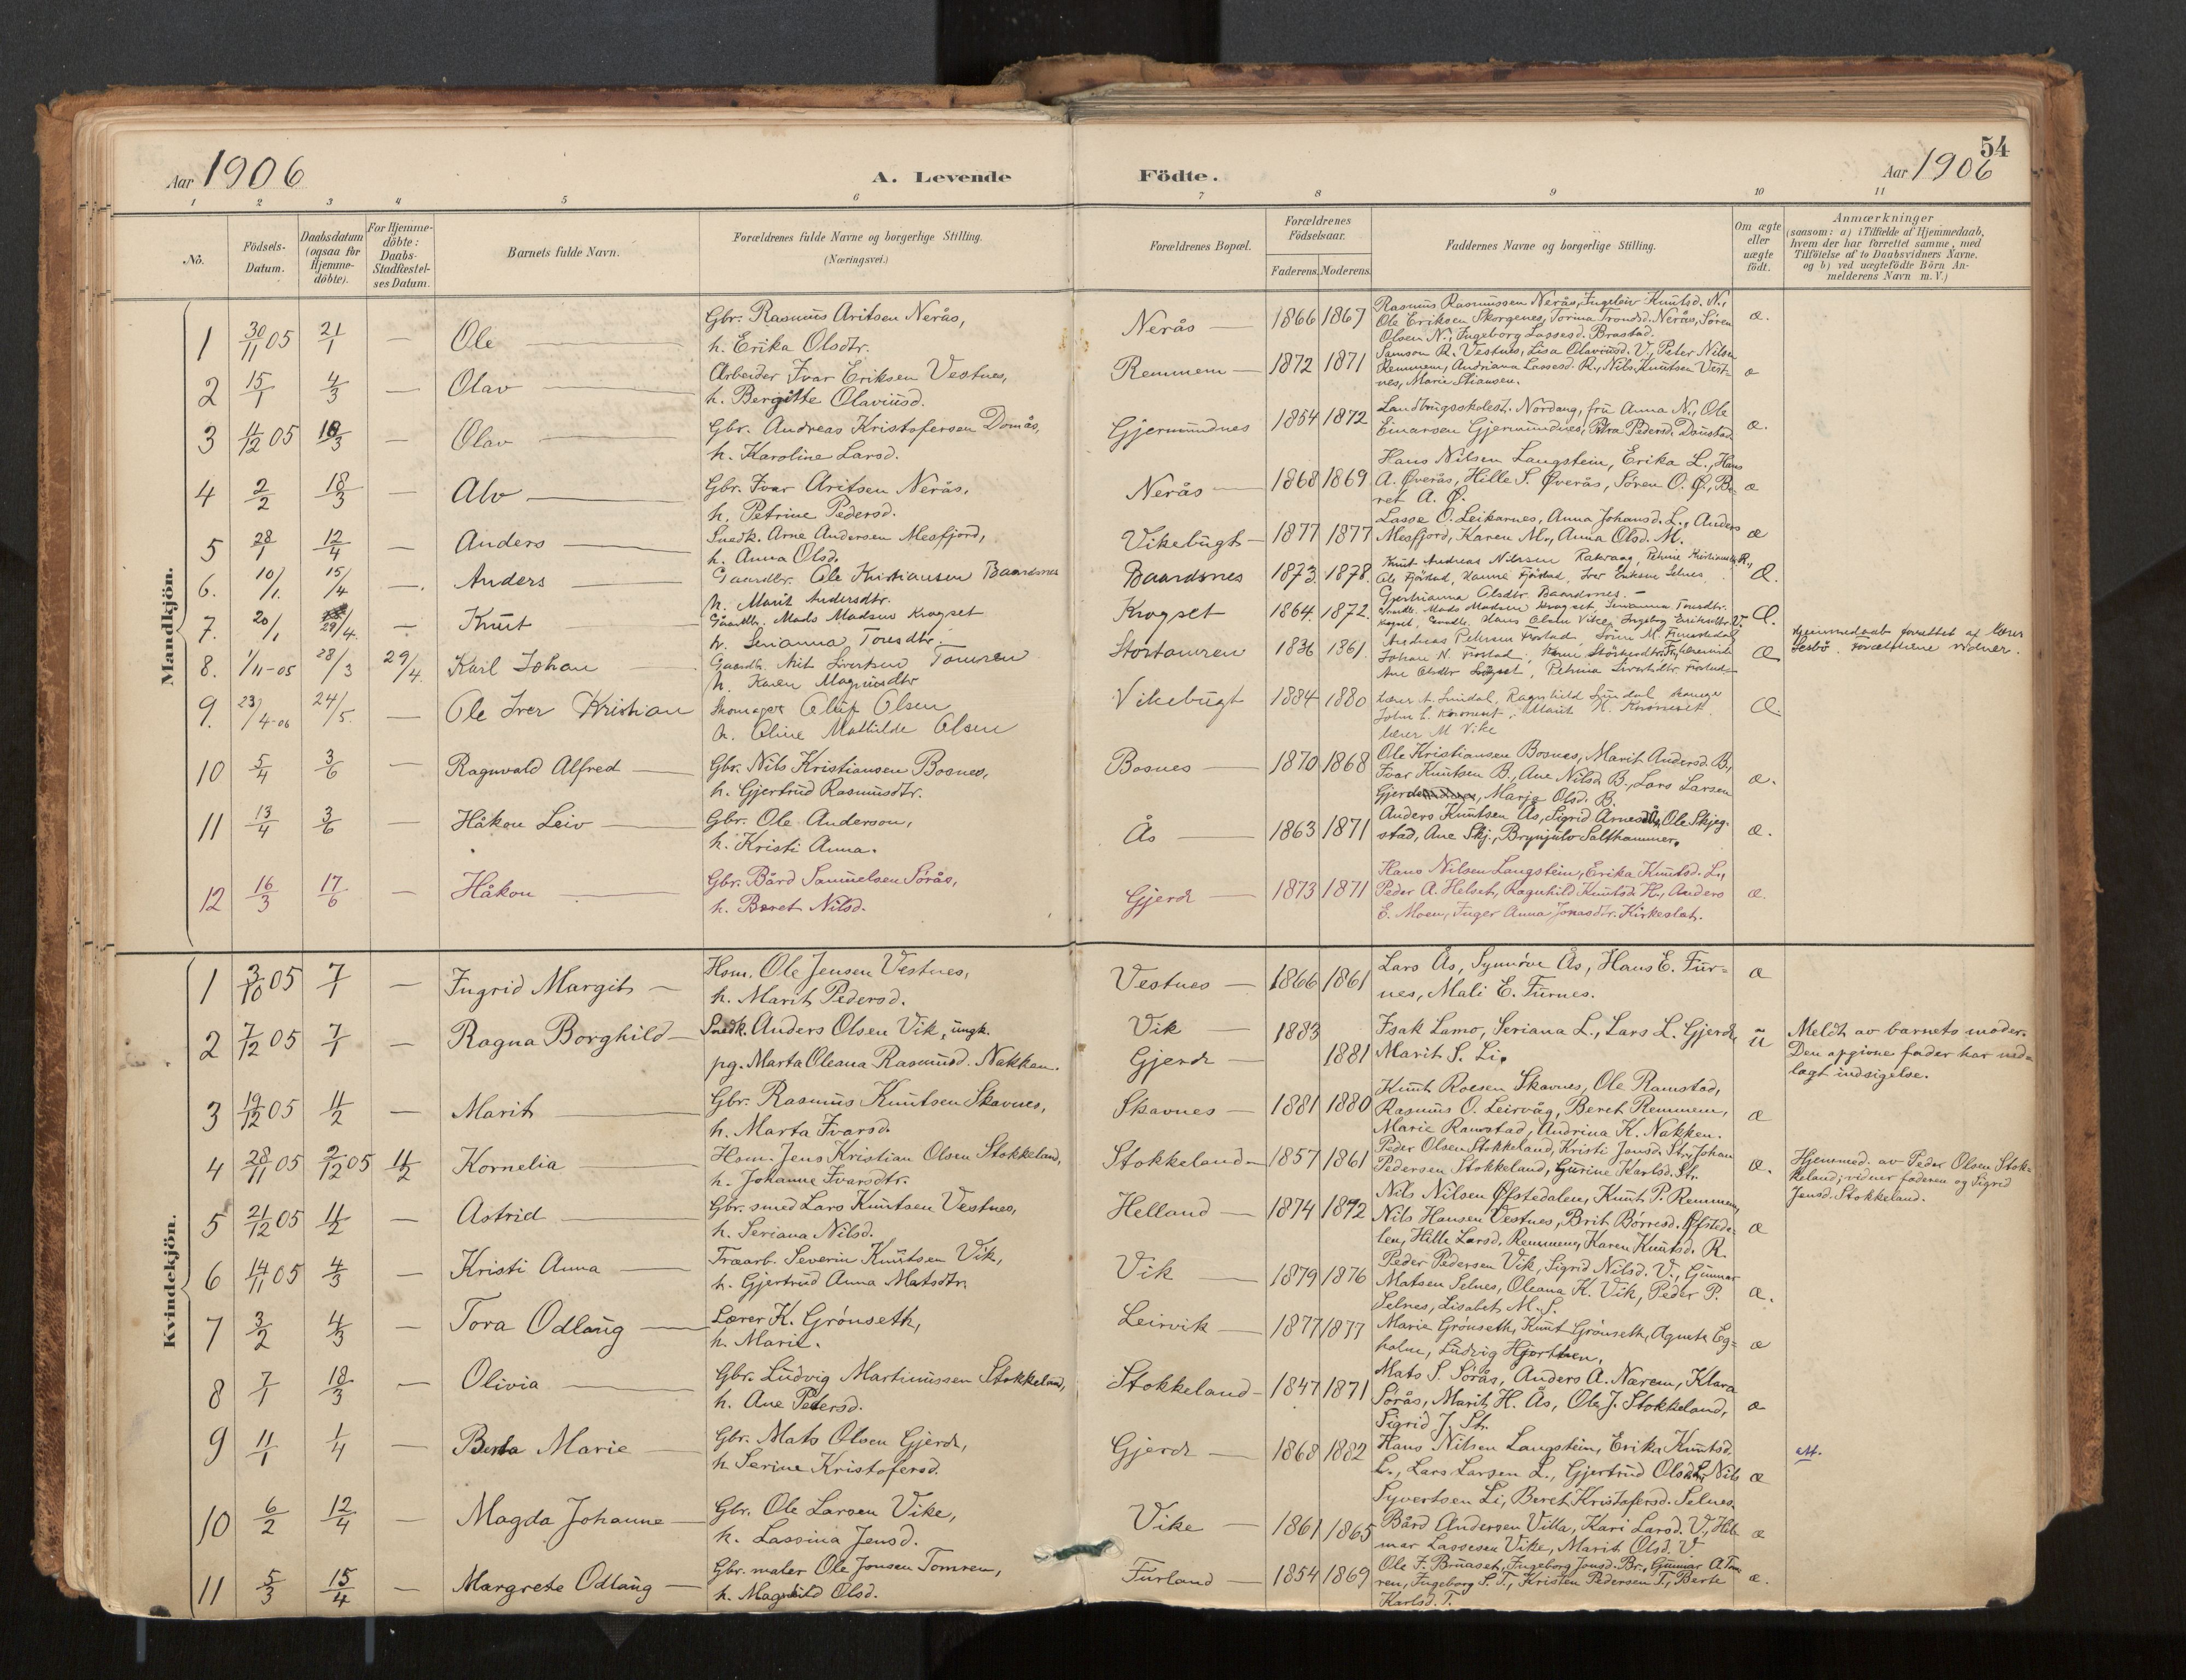 54
Aar 1906
A. Levende Födte.
Aar 1906
1 2 3 4 5 6 7 8 9 10 11
No.
Födsels-Datum.
Daabsdatum (ogsaa for Hjemme-döbte).
For Hjemme-döbte: Daabs-Stadfæstel-ses Datum.
Barnets fulde Navn.
Forældrenes fulde Navne og borgerlige Stilling. (Næringsvei.)
Forældrenes Bopæl.
Forældrenes Födselsaar.
Faderens. Moderens.
Faddernes Navne og borgerlige Stilling.
Om ægte eller uægte födt.
Anmærkninger
(saasom: a) i Tilfælde af Hjemmedaab,
hvem der har forrettet samme, med
Tilföielse af to Daabsvidners Navne.
og b) ved uægtefödte Börn An-
melderens Navn m. V.)
Mandkjön.
1 30/11 05 21/1 — Ole
Gbr. Rasmus Aritsen Nerås,
h. Erika Olsdtr.
Nerås — 1866 1867
Rasmus Rasmussen Nerås, Ingeleiv Knutsd. N.,
Ole Eriksen Skorgenes, Torina Trondsd. Nerås, Søren
Olsen N., Ingeborg Lassesd. Brastad.
æ.
2 15/1 4/3 — Olav
Arbeider Ivar Eriksen Vestnes,
h. Bergitte Olaviusd.
Remmem — 1872 1871
Samson R. Vestnes, Lisa Olaviusd. V., Peter Nilsen
Remmem, Andriana Lassesd. R., Nils Knutsen Vest-
nes, Marie Stiansen.
æ
3 11/12 05 18/3 — Olav
Gbr. Andreas Kristofersen Domås,
h. Karoline Larsd.
Gjermundnes 1854 1872
Landbrugsskolest. Nordang, fru Anna N., Ole
Einarsen Gjermundnes, Petra Pedersd. Daustad
æ.
4 2/2 18/3 — Alv
Gbr. Ivar Aritsen Nerås,
h. Petrine Pedersd.
Nerås — 1868 1869
Hans Nilsen Langstein, Erika L., Hans
A. Øverås, Hille S. Øverås, Søren O. Ø., Be-
ret A. Ø.
æ
5 28/1 12/4 — Anders
Snedk. Arne Andersen Mesfjord,
h. Anna Olsd.
Vikebugt — 1877 1877
Lasse O. Leikarnes, Anna Johansd. L., Anders
Mesfjord, Karen M., Anna Olsd. M.
æ
6. 10/1. 15/4 — Anders
Gaardbr. Ole Kristiansen Baardsnes
h. Marit Andersdtr.
Baardsnes 1873. 1878.
Knut Andreas Nilssen Rakvaag, Petrine Kristiansdtr R.,
Ole Fjørstad, Hanna Fjørstad, Iver Eriksen Selnes
Gjertrianna Olsdtr. Baardsnes. —
Æ.
7. 20/1 29/4. — Knut
Gaardbr. Mads Madsen Krogset
h. Serianna Tonesdtr.
Krogset 1864. 1872.
Gaardb. Mads Madsen Krogset, Serianna Tonesdtr.
Krogset, Gaardb. Hans Olsen Vike, Ingeborg Eriksdtr V.
Æ.
8. 1/11-05 28/3 29/4. Karl Johan
Gaardb. Nils Siversen Tomren
h. Karen Magnusdtr
Stortomren 1836 1861.
Æ
Hjemmedaab forrettet af lærer
Lesbö. Forældrene vidner.
9. 23/4-06 24/5. — Ole Iver Kristian
Skomager Oluf Olsen
h. Oline Mathilde Olsen
Vikebugt 1884 1880
Lærer A. Sundal, Ragnhild Sundal
lærer M Vike
Æ.
10 5/4 3/6 — Ragnvald Alfred
Gbr. Nils Kristiansen Bosnes,
h. Gjertrud Rasmusdtr.
Bosnes — 1870 1868
Ole Kristiansen Bosnes, Marit Andersd. B.,
Ivar Knutsen B., Ane Nilsd. B., Lars Larsen
Gjerde, Marja Olsd. B.
æ.
11 13/4 3/6 — Håkon Leiv
Gbr. Ole Anderson,
h. Kristi Anna.
Ås — 1863 1871
Anders Knutsen Ås, Sigrid Arnesd. Ås, Ole Skjeg-
stad, Ane Skj., Brynjulv Salthammer.
æ.
12 16/3 17/6 — Håkon
Gbr. Bård Samuelsen Sørås,
h. Beret Nilsd.
Gjerde — 1873 1871
Hans Nilsen Langstein, Erika Knutsd. L.,
Peder A. Helset, Ragnhild Knutsd. H., Anders
E. Moen, Inger Anna Jonasdtr. Kirkeslat.
æ.
Kvindekjön.
1 3/10 05 7/1 — Ingrid Margit
Hsm. Ole Jensen Vestnes,
h. Marit Pedersd.
Vestnes — 1866 1861
Lars Ås, Synnøve Ås, Hans E. Fur-
nes, Mali E. Furnes.
æ
2 7/12 05 7/1 — Ragna Borghild
Snedk. Anders Olsen Vik, ungk.
pg. Marta Oleana Rasmusd. Nakken.
Vik — 1883
Gjerde — 1881
Isak Lamo, Seriana L., Lars L. Gjerde,
Marit S. Li.
u
Meldt av barnets moder.
Den opgivne fader har ned-
lagt indsigelse.
3 19/12 05 11/2 — Marit
Gbr. Rasmus Knutsen Skavnes,
h. Marta Ivarsd.
Skavnes — 1881 1880
Knut Roesen Skavnes, Ole Ramstad,
Rasmus O. Leirvåg, Beret Remmem,
Marie Ramstad, Andrina K. Nakken.
æ
4 28/11 05 2/12 05 11/2 Kornelia
Hsm. Jens Kristian Olsen Stokkeland,
h. Johanne Ivarsdtr.
Stokkeland — 1857 1861
Peder Olsen Stokkeland, Kristi Jonsd. St., Johan
Pedersen Stokkeland, Gurine Karlsd. St.
æ.
Hjemmed. av Peder Olsen Stok-
keland; vidner faderen og Sigrid
Jensd. Stokkeland.
5 21/12 05 11/2 — Astrid
Gbr. smed Lars Knutsen Vestnes,
h. Seriana Nilsd.
Helland — 1874 1872
Nils Nilsen Øfstedalen, Knut P. Remmem,
Nils Hansen Vestnes, Brit Børresd. Øfsteda-
len, Hille Larsd. Remmem, Karen Knutsd. R.
æ
6 14/11 05 4/3 — Kristi Anna
Træarb. Severin Knutsen Vik,
h. Gjertrud Anna Matsdtr.
Vik — 1879 1876
Peder Pedersen Vik, Sigrid Nilsd. V., Gunnar
Matsen Selnes, Oleana K. Vik, Peder P.
Selnes, Lisabet M. S.
æ.
7 3/2 4/3 — Tora Odlaug
Lærer K. Grønseth,
h. Marie.
Leirvik — 1877 1877
Marie Grønseth, Knut Grønseth, Agnete Eg-
holm, Ludvig Hjorthen.
æ
8 7/1 18/3 — Olivia
Gbr. Ludvig Martinussen Stokkeland,
h. Ane Petersd.
Stokkeland — 1847 1871
Mats S. Sørås, Anders A. Nærem, Klara
Sørås, Marit H. Ås, Ole J. Stokkeland,
Sigrid J. St.
æ
9 11/1 1/4 — Berta Marie
Gbr. Mats Olsen Gjerde,
h Serine Kristofersd.
Gjerde — 1868 1882
Hans Nilsen Langstein, Erika Knutsd.
L., Lars Larsen L., Gjertrud Olsd. L., Nils
Syvertsen Li, Beret Kristofersd. Selnes.
æ
att.
10 6/2 12/4 — Magda Johanne
Gbr. Ole Larsen Vike,
h. Lassina Jensd.
Vike — 1861 1865
Bård Andersen Villa, Kari Larsd. V., Hil-
mar Lassesen Vike, Marit Olsd. V
æ
11 5/3 15/4 — Margrete Odlaug
Gbr. maler Ole Jonsen Tomrem,
h. Magnhild Olsd.
Furland — 1854 1869
Ole F. Bruaset, Ingeborg Jonsd. Br., Gunnar A Tom-
ren, Ingeborg S. T., Kristen Pedersen T., Berte
Karlsd. T.
æ.